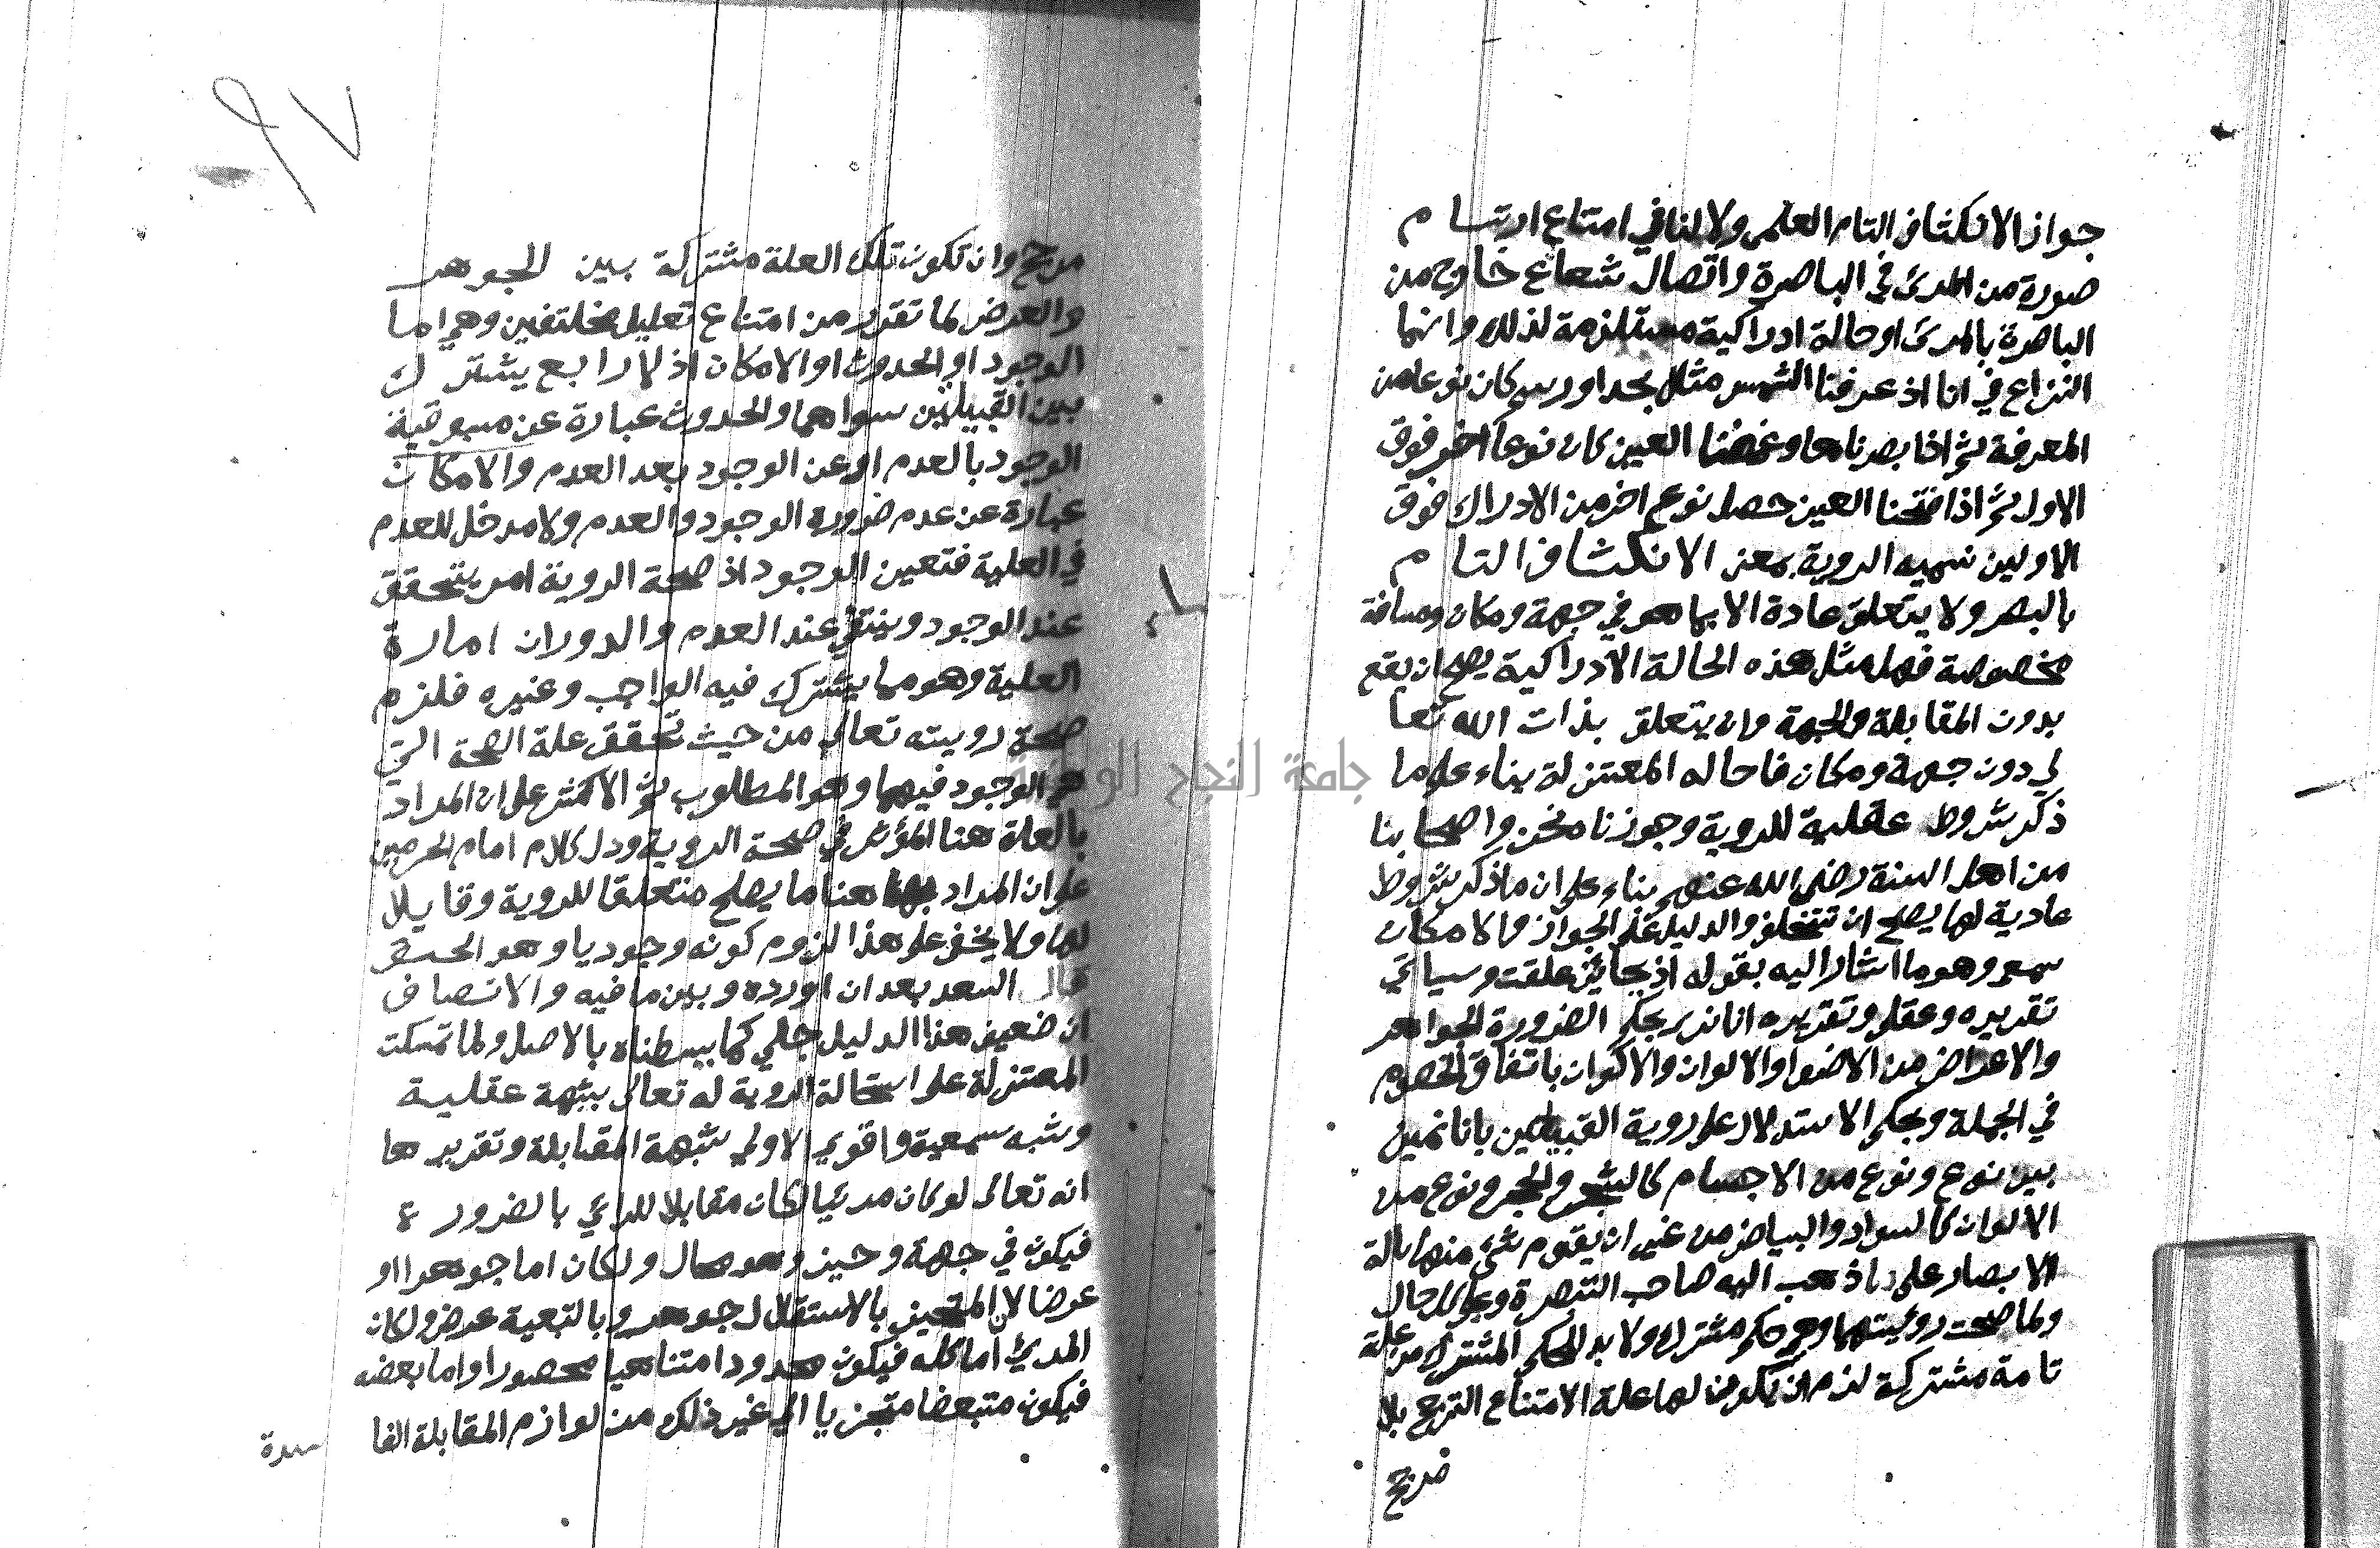 جواز الانكشاف التام العلمي ولا لنا في امتناع ارتسام
صورة من المرئ في الباصرة واتصال شعاع خارج من
الباصرة بالمرئ او حالة ادراكية مستلزمة لذلك وانما
النزاع في انا اذ عرفنا الشمس مثلا بحد او رسم كان نوعا من
المعرفة ثم اذا بصرناها وغمضنا العين كان نوعا اخر فوق
الاول ثم اذا فتحنا العين حصل نوع اخر من الادراك فوق
الاولين نسميه الروية بمعنى الانكشاف التام
بالبصر ولا يتعلق عادة الا بما هو في جهة ومكان ومسافة
مخصوصة فهل مثل هذه الحالة الادراكية يصح ان يقع
بدون المقابلة والجهة وان يتعلق بذات الله تعا
لي دون جهة ومكان فاحاله المعتزلة بناء على ما
ذكر شروط عقلية للروية وجوزناه نحن واصحابنا
من اهل السنة رضي الله عنهم بناء على ان ما ذكر شروط
عادية لها يصح ان تتخلف والدليل على الجواز والامكان
سمعي وهو ما اشار اليه بقوله اذ بجايز علقت وسياتي
تقديره وعقلي وتقريره انا ندري بحكم الضرورة الجواهر
والاعراض من الاضوا والالوان والاكوان باتفاق الخصوم
في الجملة وبحكم الاستدلال على روية القبيلين بانا نميز
بين نوع ونوع من الاجسام كالشجر والحجر ونوع من
الالوان كالسواد والبياض من غير ان يقوم شئ منهما بالة
الابصار على ما ذهب اليه صاحب التبصرة وعلى كل حال
ولما صحت رؤيتهما وهي حكم مشترك ولا بد للحكم المشترك من علة
تامة مشتركة لزم ان تكون لها علة الامتناع الترجيح بلا
مرجح
٩٧
مرجح وان تكون تلك العلة مشتركة بين الجوهر
والعرض لما تقرر من امتناع تعليل مختلفين وهي اما
الوجود او الحدوث او الامكان اذ لا رابع يشترك
بين القبيلين سواهما والحدوث عبارة عن مسبوقية
الوجود بالعدم او عن الوجود بعد العدم والامكان
عبارة عن عدم ضرورة الوجود والعدم ولا مدخل للعدم
في العلية فتعين الوجود اذ صحة الروية امر يتحقق
عند الوجود وينتفي عند العدم والدوران امارة
العلية وهو مما يشترك فيه الواجب وغيره فلزم
صحة رويته تعالى من حيث تحقق علة الصحة التي
هي الوجود فيهما وهو المطلوب ثم الاكثر على ان المراد
بالعلة هنا المؤثر في صحة الروية ودل كلام امام الحرمين
على ان المراد بها هنا ما يصلح متعلقا للروية وقابلا
لها ولا يخفى على هذا لزوم كونه وجوديا وهو الحق
قال السعد بعد ان اورده وبين ما فيه والانصاف
ان ضعيف هذا الدليل جلي كما بسطناه بالاصل ولما تمسكت
المعتزلة على استحالة الروية له تعالى بشبهة عقلية
وشبه سمعية واقوي الاولي شبهة المقابلة وتقديرها
انه تعالى لو كان مرئيا لكان مقابلا للرائي بالضرورة
فيكون في جهة وحيز وهو محال ولكان اما جوهرا او
عرضا لان المتحيز بالاستقلال جوهر وبالتبعية عرض ولكان
المرئ اما كله فيكون محدودا متناهيا محصورا واما بعضه
فيكون متبعضا متجزيا الي غير ذلك من لوازم المقابلة الفا
سدة
جامعة النجاح الوطنية